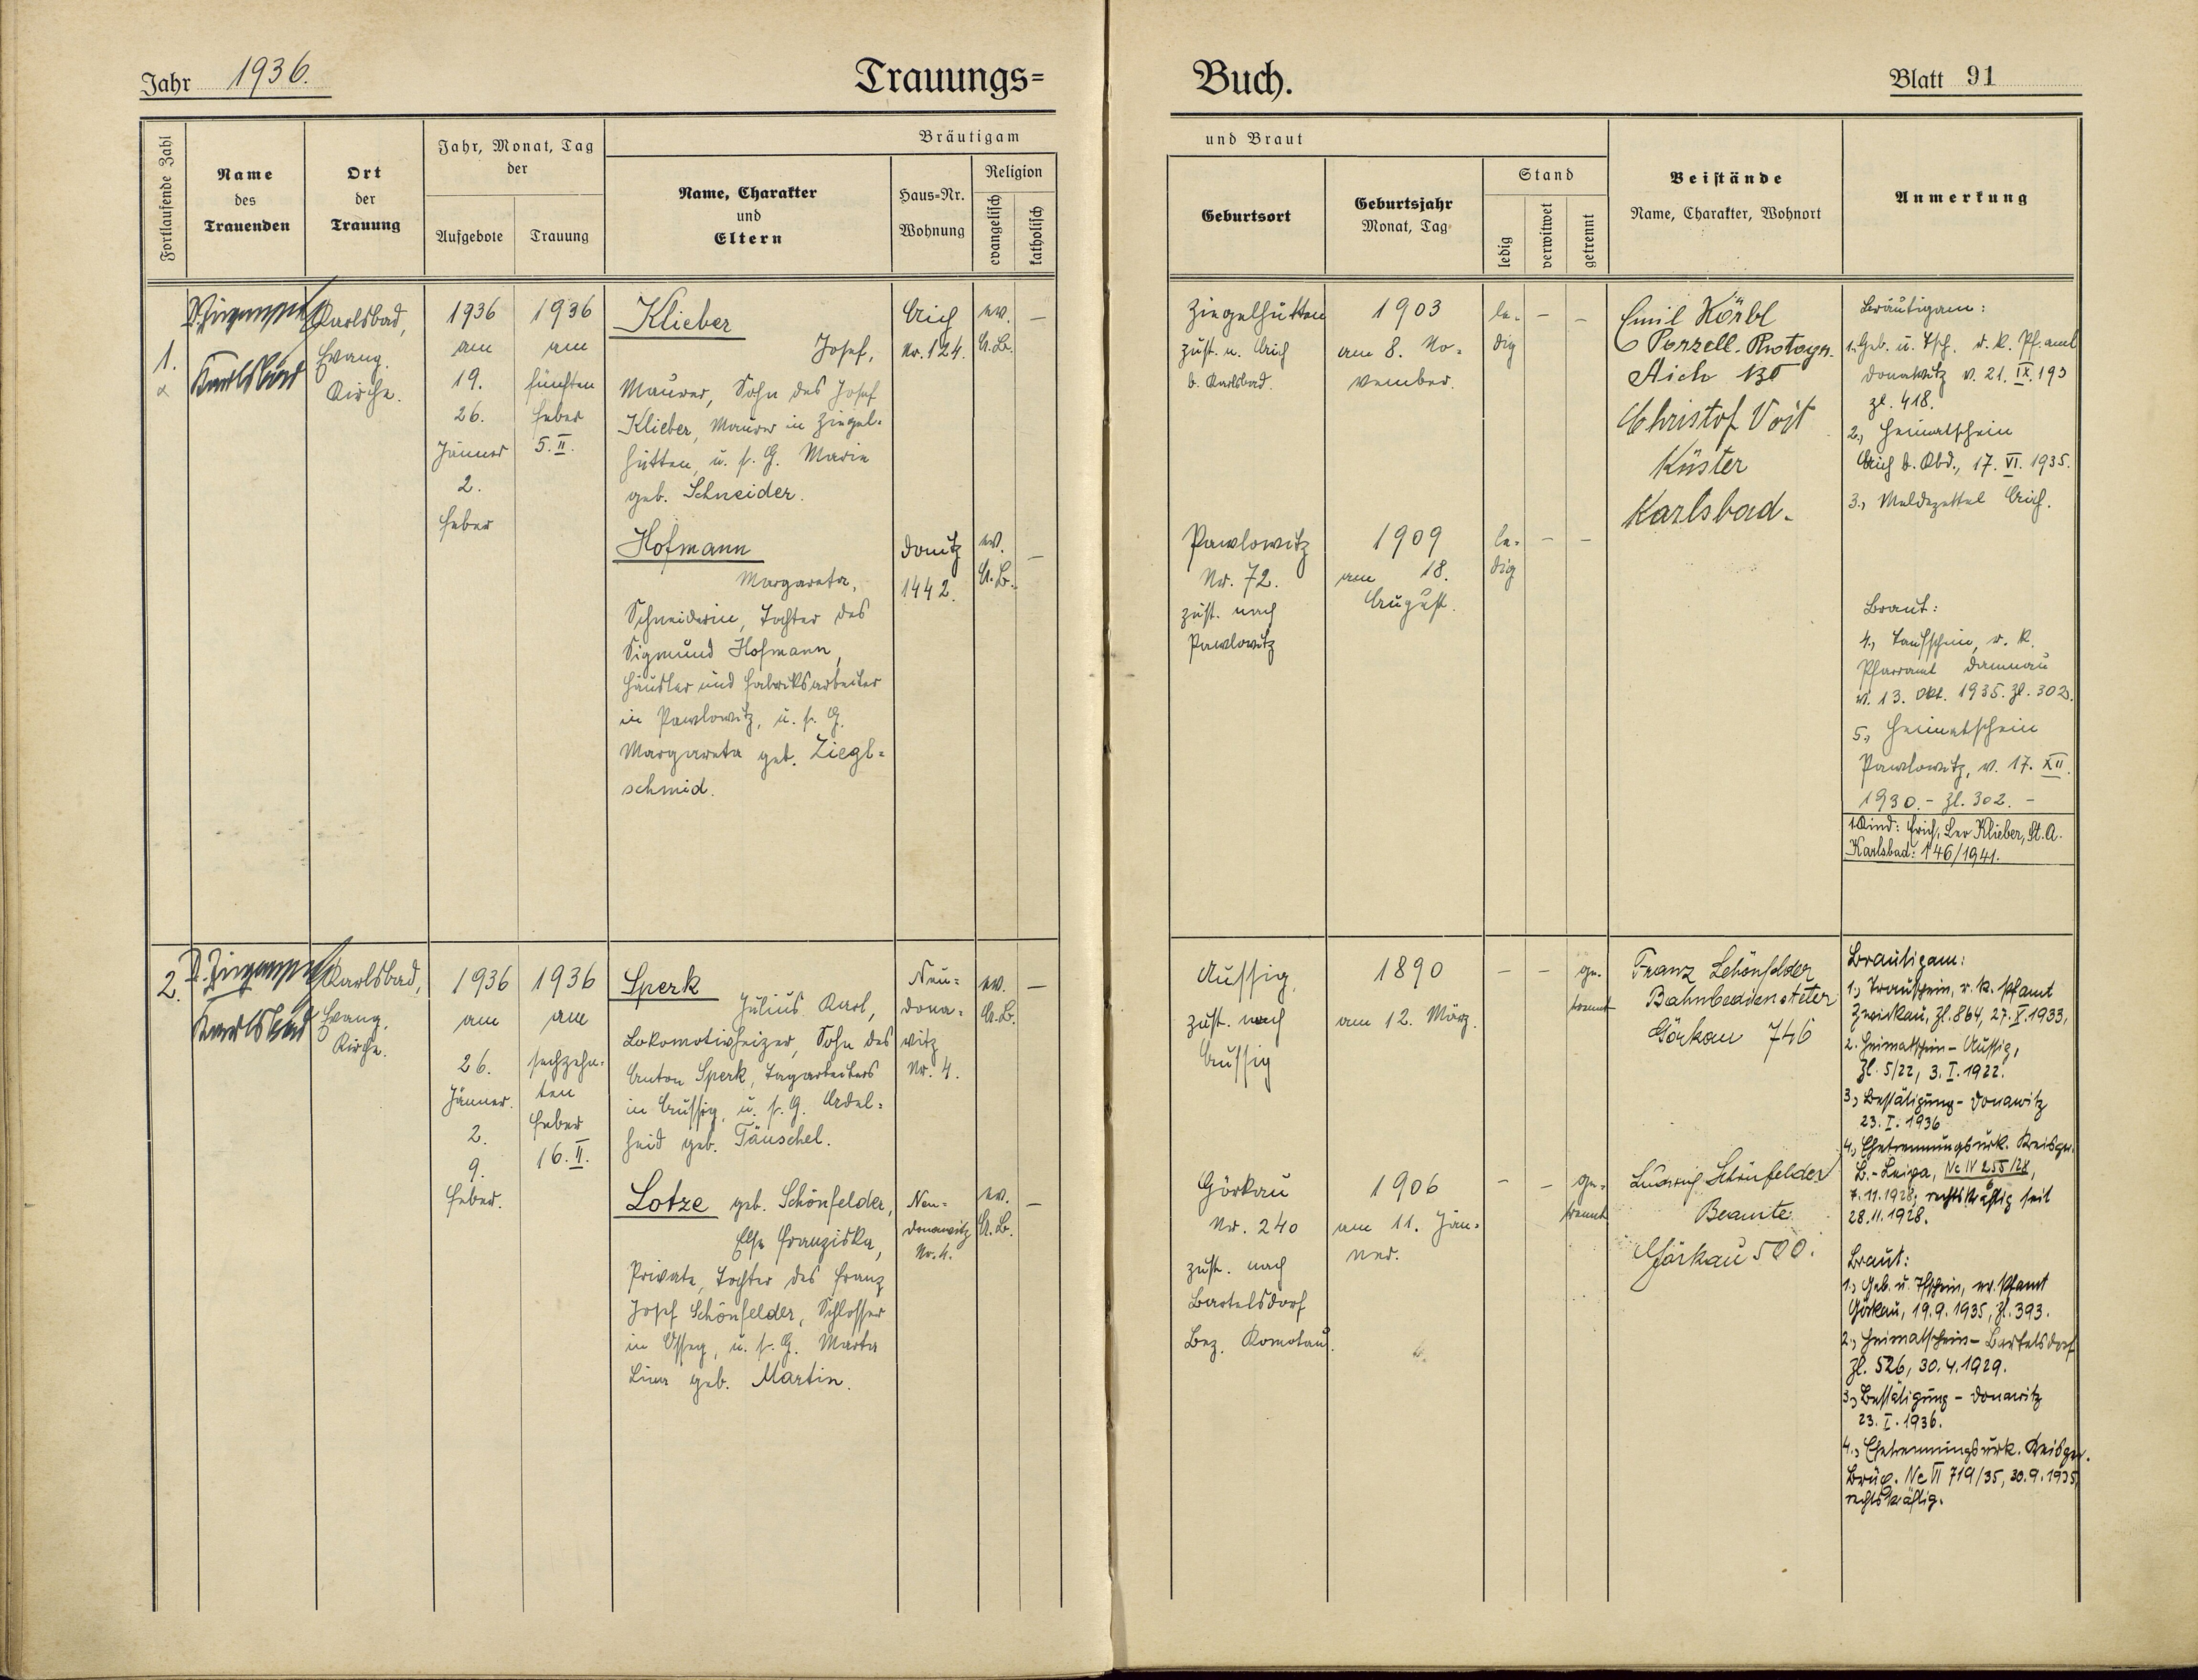 Jahr 1936.
Trauungs=
Buch.
Blatt 91
Fortlaufende Zahl
Name
des
Trauenden
Ort
der
Trauung
Jahr, Monat, Tag
der
Aufgebote
Trauung
Bräutigam
Name, Charakter
und
Eltern
Haus=Nr.
Wohnung
Religion
evangelisch
katholisch
und Braut
Geburtsort
Geburtsjahr
Monat, Tag
Stand
ledig
verwitwet
getrennt
Beistände
Name, Charakter, Wohnort
Anmerkung
1.
Karlsbad
Karlsbad,
Evang.
Kirche.
1936
am
19.
26.
Jänner
2.
Feber
1936
am
fünften
Feber
5. II.
Klieber
Josef,
Maurer, Sohn des Josef
Klieber, Maurer in Ziegel=
hütten, u. s. G. Marie
geb. Schneider.
Aich
Nr. 124.
ev.
A.B.
—
Ziegelhütten
zust. n. Aich
b. Karlsbad.
1903
am 8. No=
vember.
le=
dig
–
–
Emil Körbl
Porzell. Photogr.
Aich 130
Christof Voit
Küster
Karlsbad.
Bräutigam:
1. Geb. u. Tsch. r. k. Pf. amt
Donawitz v. 21. IX. 193
zl. 418.
2., Heimatschein
Aich b. Kbd., 17. VI. 1935.
3., Meldezettel Aich.
Hofmann
Margareta,
Schneiderin, Tochter des
Sigmund Hofmann,
Häusler und Fabriksarbeiter
in Pawlowitz, u. s. G.
Margareta geb. Ziegl=
schmid.
Donitz
1442.
ev.
A.B.
—
Pawlowitz
Nr. 72.
zust. nach
Pawlowitz
1909
am 18.
August.
le=
dig
–
–
Braut:
4., Taufschein, r. k.
Pfarramt Damnau
v. 13. Okt. 1935. Zl. 302.
5., Heimatschein
Pawlowitz, v. 17. XII.
1930. – Zl. 302. –
1. Kind: Erich, Leo Klieber, St. A.
Karlsbad: 146/1941.
2.
Karlsbad
Karlsbad,
Evang.
Kirche.
1936
am
26.
Jänner.
2.
9.
Feber.
1936
am
sechzehn=
ten
Feber
16. II.
Sperk
Julius Karl,
Lokomotivheizer, Sohn des
Anton Sperk, Tagarbeiters
in Aussig, u. s. G. Adel=
heid geb. Täuschel.
Neu=
dona=
witz
Nr. 4.
ev.
A.B.
—
Aussig,
zust. nach
Aussig
1890
am 12. März.
–
–
ge=
trennt
Franz Schönfelder
Bahnbediensteter
Görkau 746
Bräutigam:
1., Trauschein, r. k. Pfamt
Zwickau, Zl. 864, 27. X. 1933,
2. Heimatschein – Aussig,
Zl. 5/22, 3. I. 1922.
3., Bestätigung – Donawitz
23. I. 1936
4., Ehetrennungsurk. Kreisger.
B.-Leipa, Nc IV 255/28,
7. 11. 1928; rechtskräftig seit
28. 11. 1928.
Lotze geb. Schönfelder,
Else Franziska,
Private, Tochter des Franz
Josef Schönfelder, Schlosser
in Ossegg, u. s. G. Marta
Lina geb. Martin.
Neu=
donawitz
Nr. 4.
ev.
A.B.
—
Görkau
Nr. 240
zust. nach
Bartelsdorf
Bez. Komotau.
1906
am 11. Jän=
ner.
–
–
ge=
trennt
Ludwig Schönfelder
Beamte
Görkau 500.
Braut:
1., Geb. u. Tfschein, ev. Pfamt
Görkau, 19. 9. 1935, Zl. 393.
2., Heimatschein – Bartelsdorf
Zl. 526, 30. 4. 1929.
3., Bestätigung – Donawitz
23. I. 1936.
4., Ehetrennungsurk. Kreisger.
Brüx. Nc VI 719/35, 30. 9. 1935,
rechtskräftig.